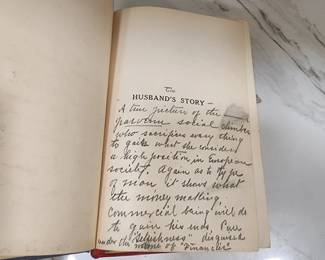 The
HUSBAND'S STORY —
A true picture of the
parvenu social climber
who sacrifices every thing
to gain what she considers
a high position in European
society. Again as to type
of man, it shows what
the money making,
commercial being will do
to gain his ends, Pure
under the "Selfishness" disguised
name of "Financier